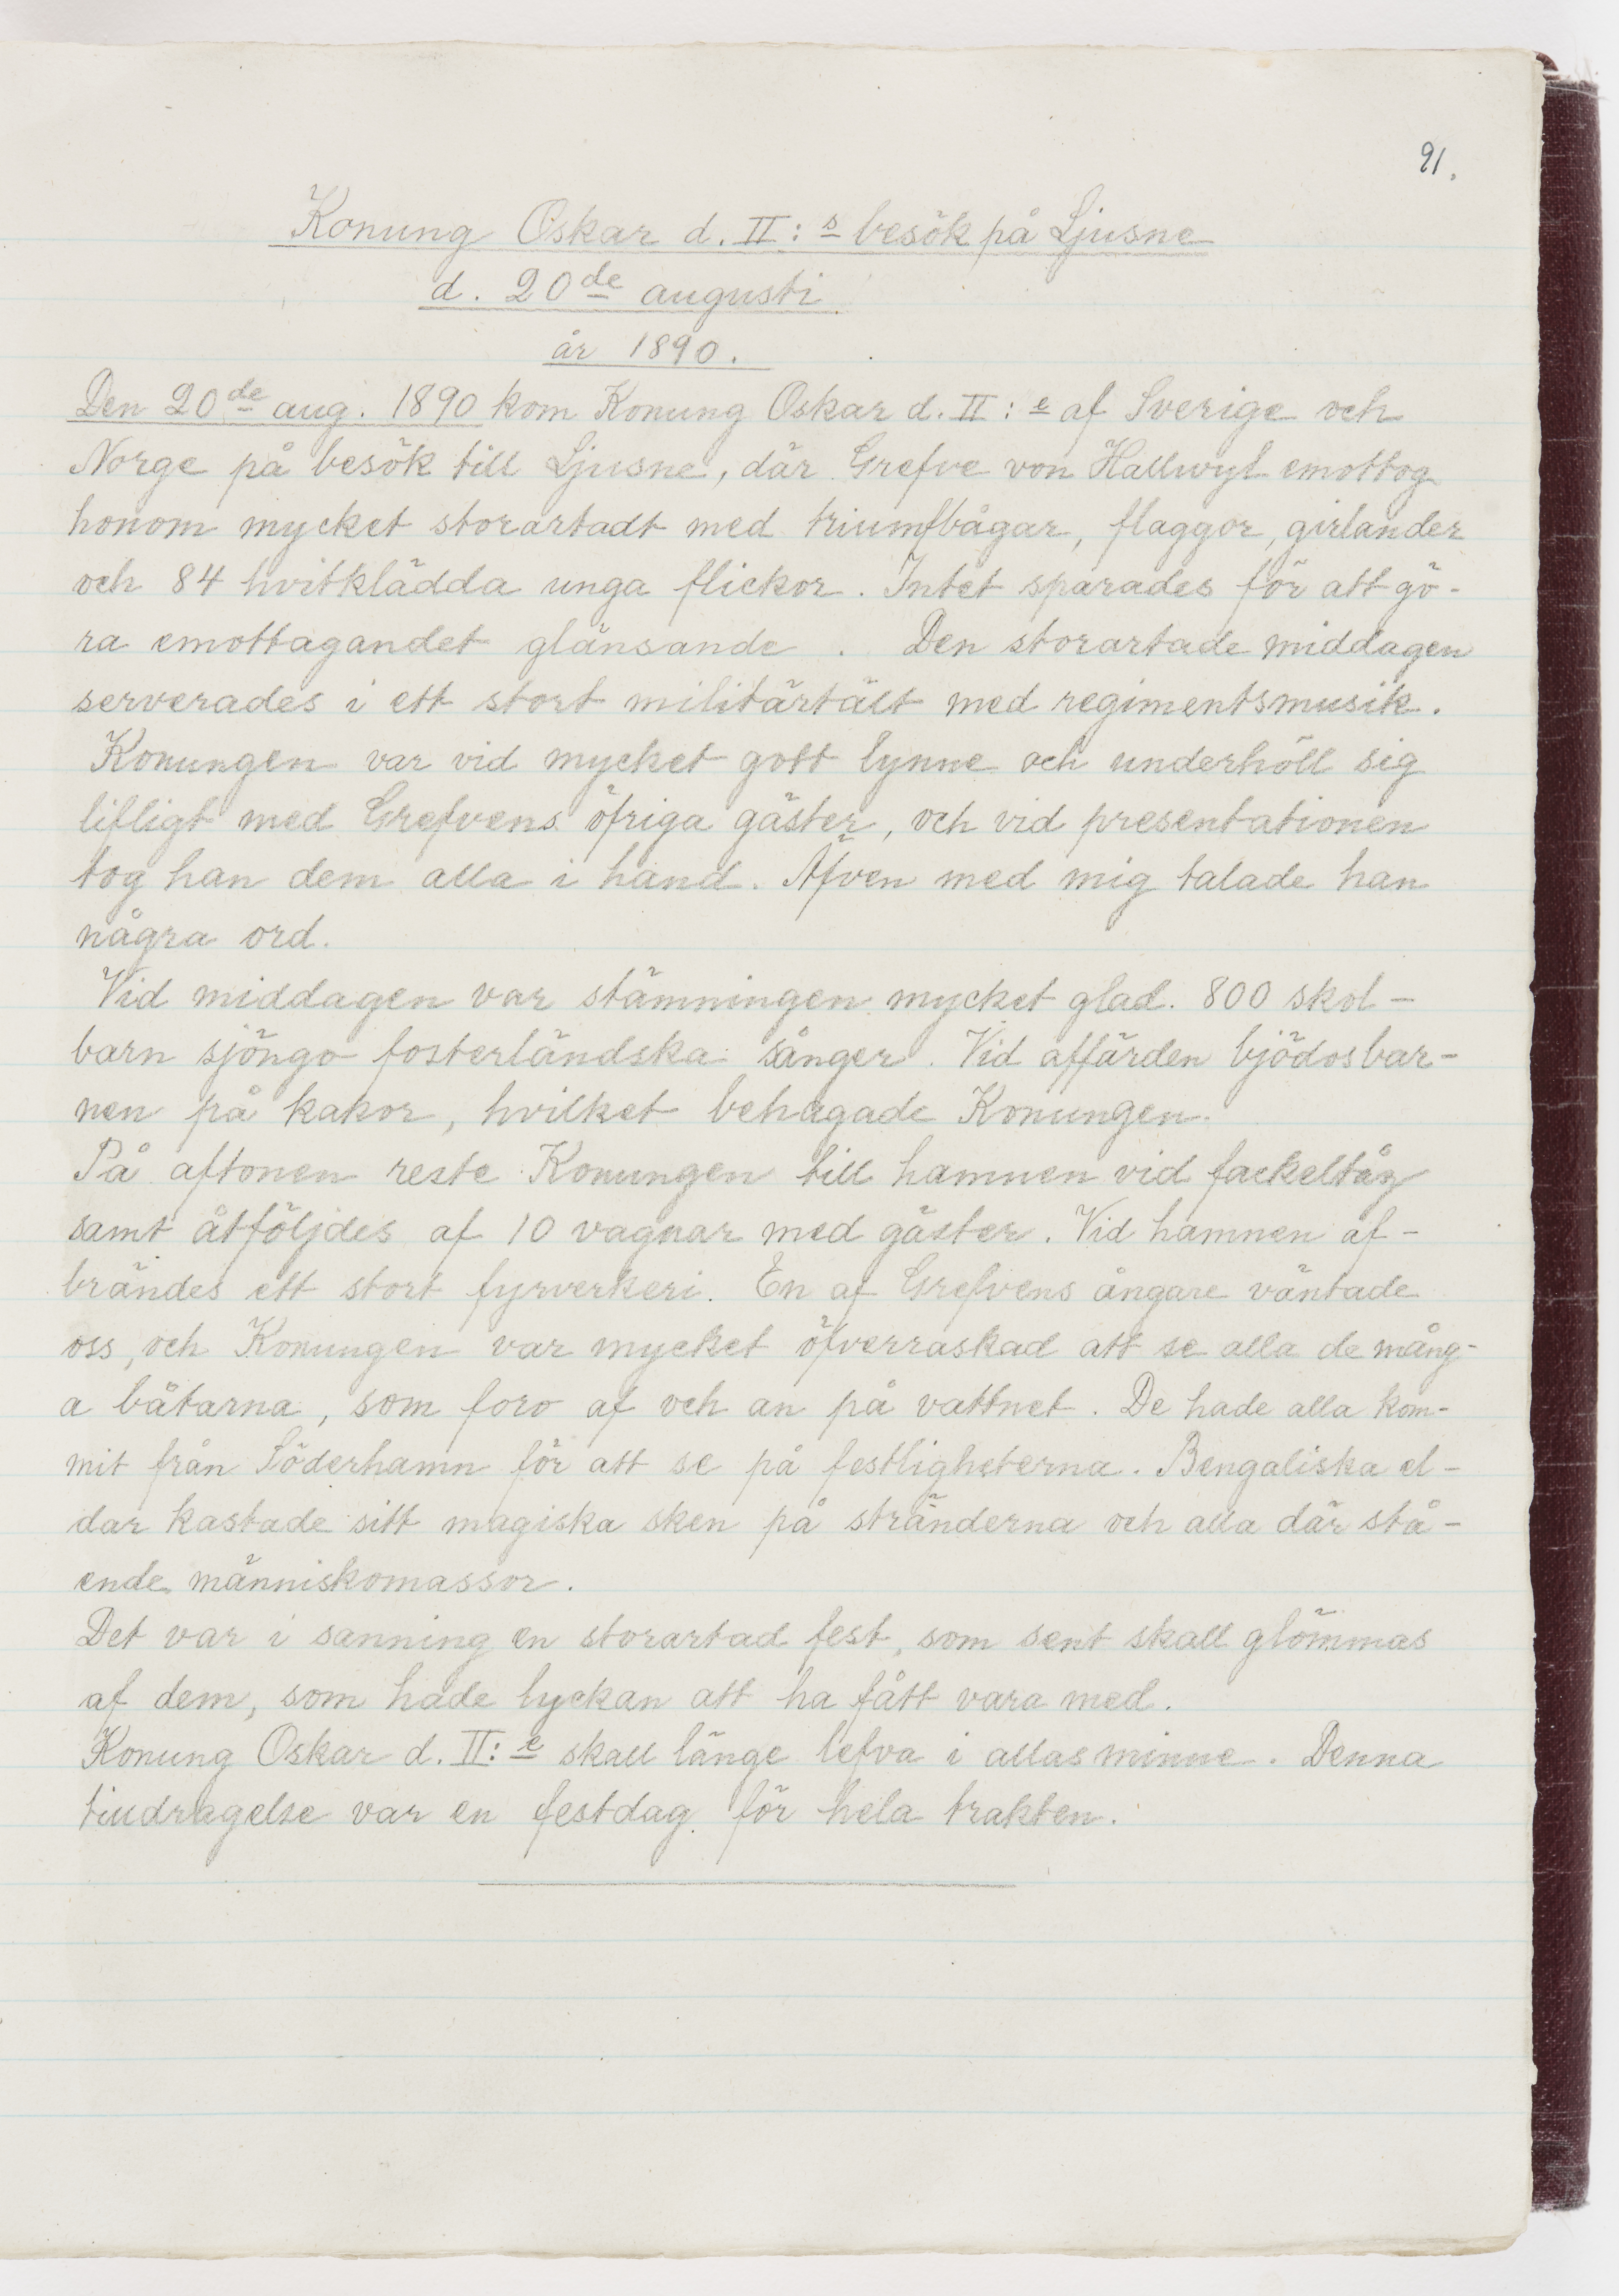 91.
Konung Oskar d. II:s besök på Ljusne
d. 20de augusti
år 1890.
Den 20de aug. 1890 kom Konung Oskar d. II:e af Sverige och
Norge på besök till Ljusne, där Grefve von Hallwyl emottog
honom mycket storartadt med triumfbågar, flaggor, girlander
och 84 hvitklädda unga flickor. Intet sparades för att gö-
ra emottagandet glänsande. Den storartade middagen
serverades i ett stort militärtält med regimentsmusik.
Konungen var vid mycket gott lynne och underhöll sig
lifligt med Grefvens öfriga gäster, och vid presentationen
tog han dem alla i hand. Äfven med mig talade han
några ord.
Vid middagen var stämningen mycket glad. 800 skol-
barn sjöngo fosterländska sånger. Vid affärden bjödos bar-
nen på kakor, hvilket behagade Konungen.
På aftonen reste Konungen till hamnen vid fackeltåg
samt åtföljdes af 10 vagnar med gäster. Vid hamnen af-
brändes ett stort fyrverkeri. En af Grefvens ångare väntade
oss, och Konungen var mycket öfverraskad att se alla de mång-
a båtarna, som foro af och an på vattnet. De hade alla kom-
mit från Söderhamn för att se på festligheterna. Bengaliska el-
dar kastade sitt magiska sken på stränderna och alla där stå-
ende människomassor.
Det var i sanning en storartad fest, som sent skall glömmas
af dem, som hade lyckan att ha fått vara med.
Konung Oskar d. II:e skall länge lefva i allas minne. Denna
tilldragelse var en festdag för hela trakten.